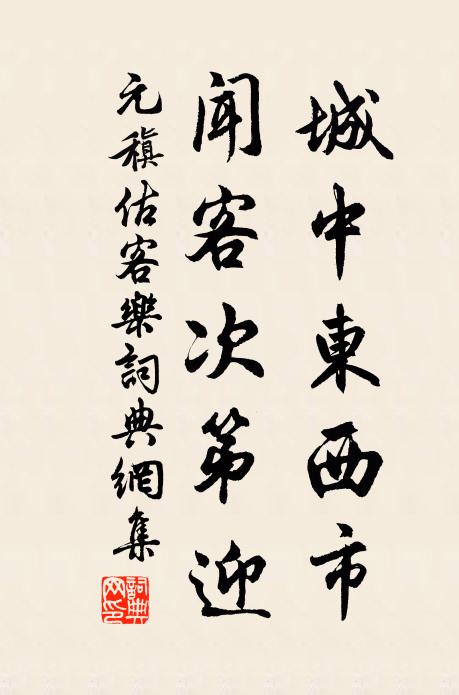 城中東西市
聞客次第迎
元稹估客樂詞典網集
詞典网印